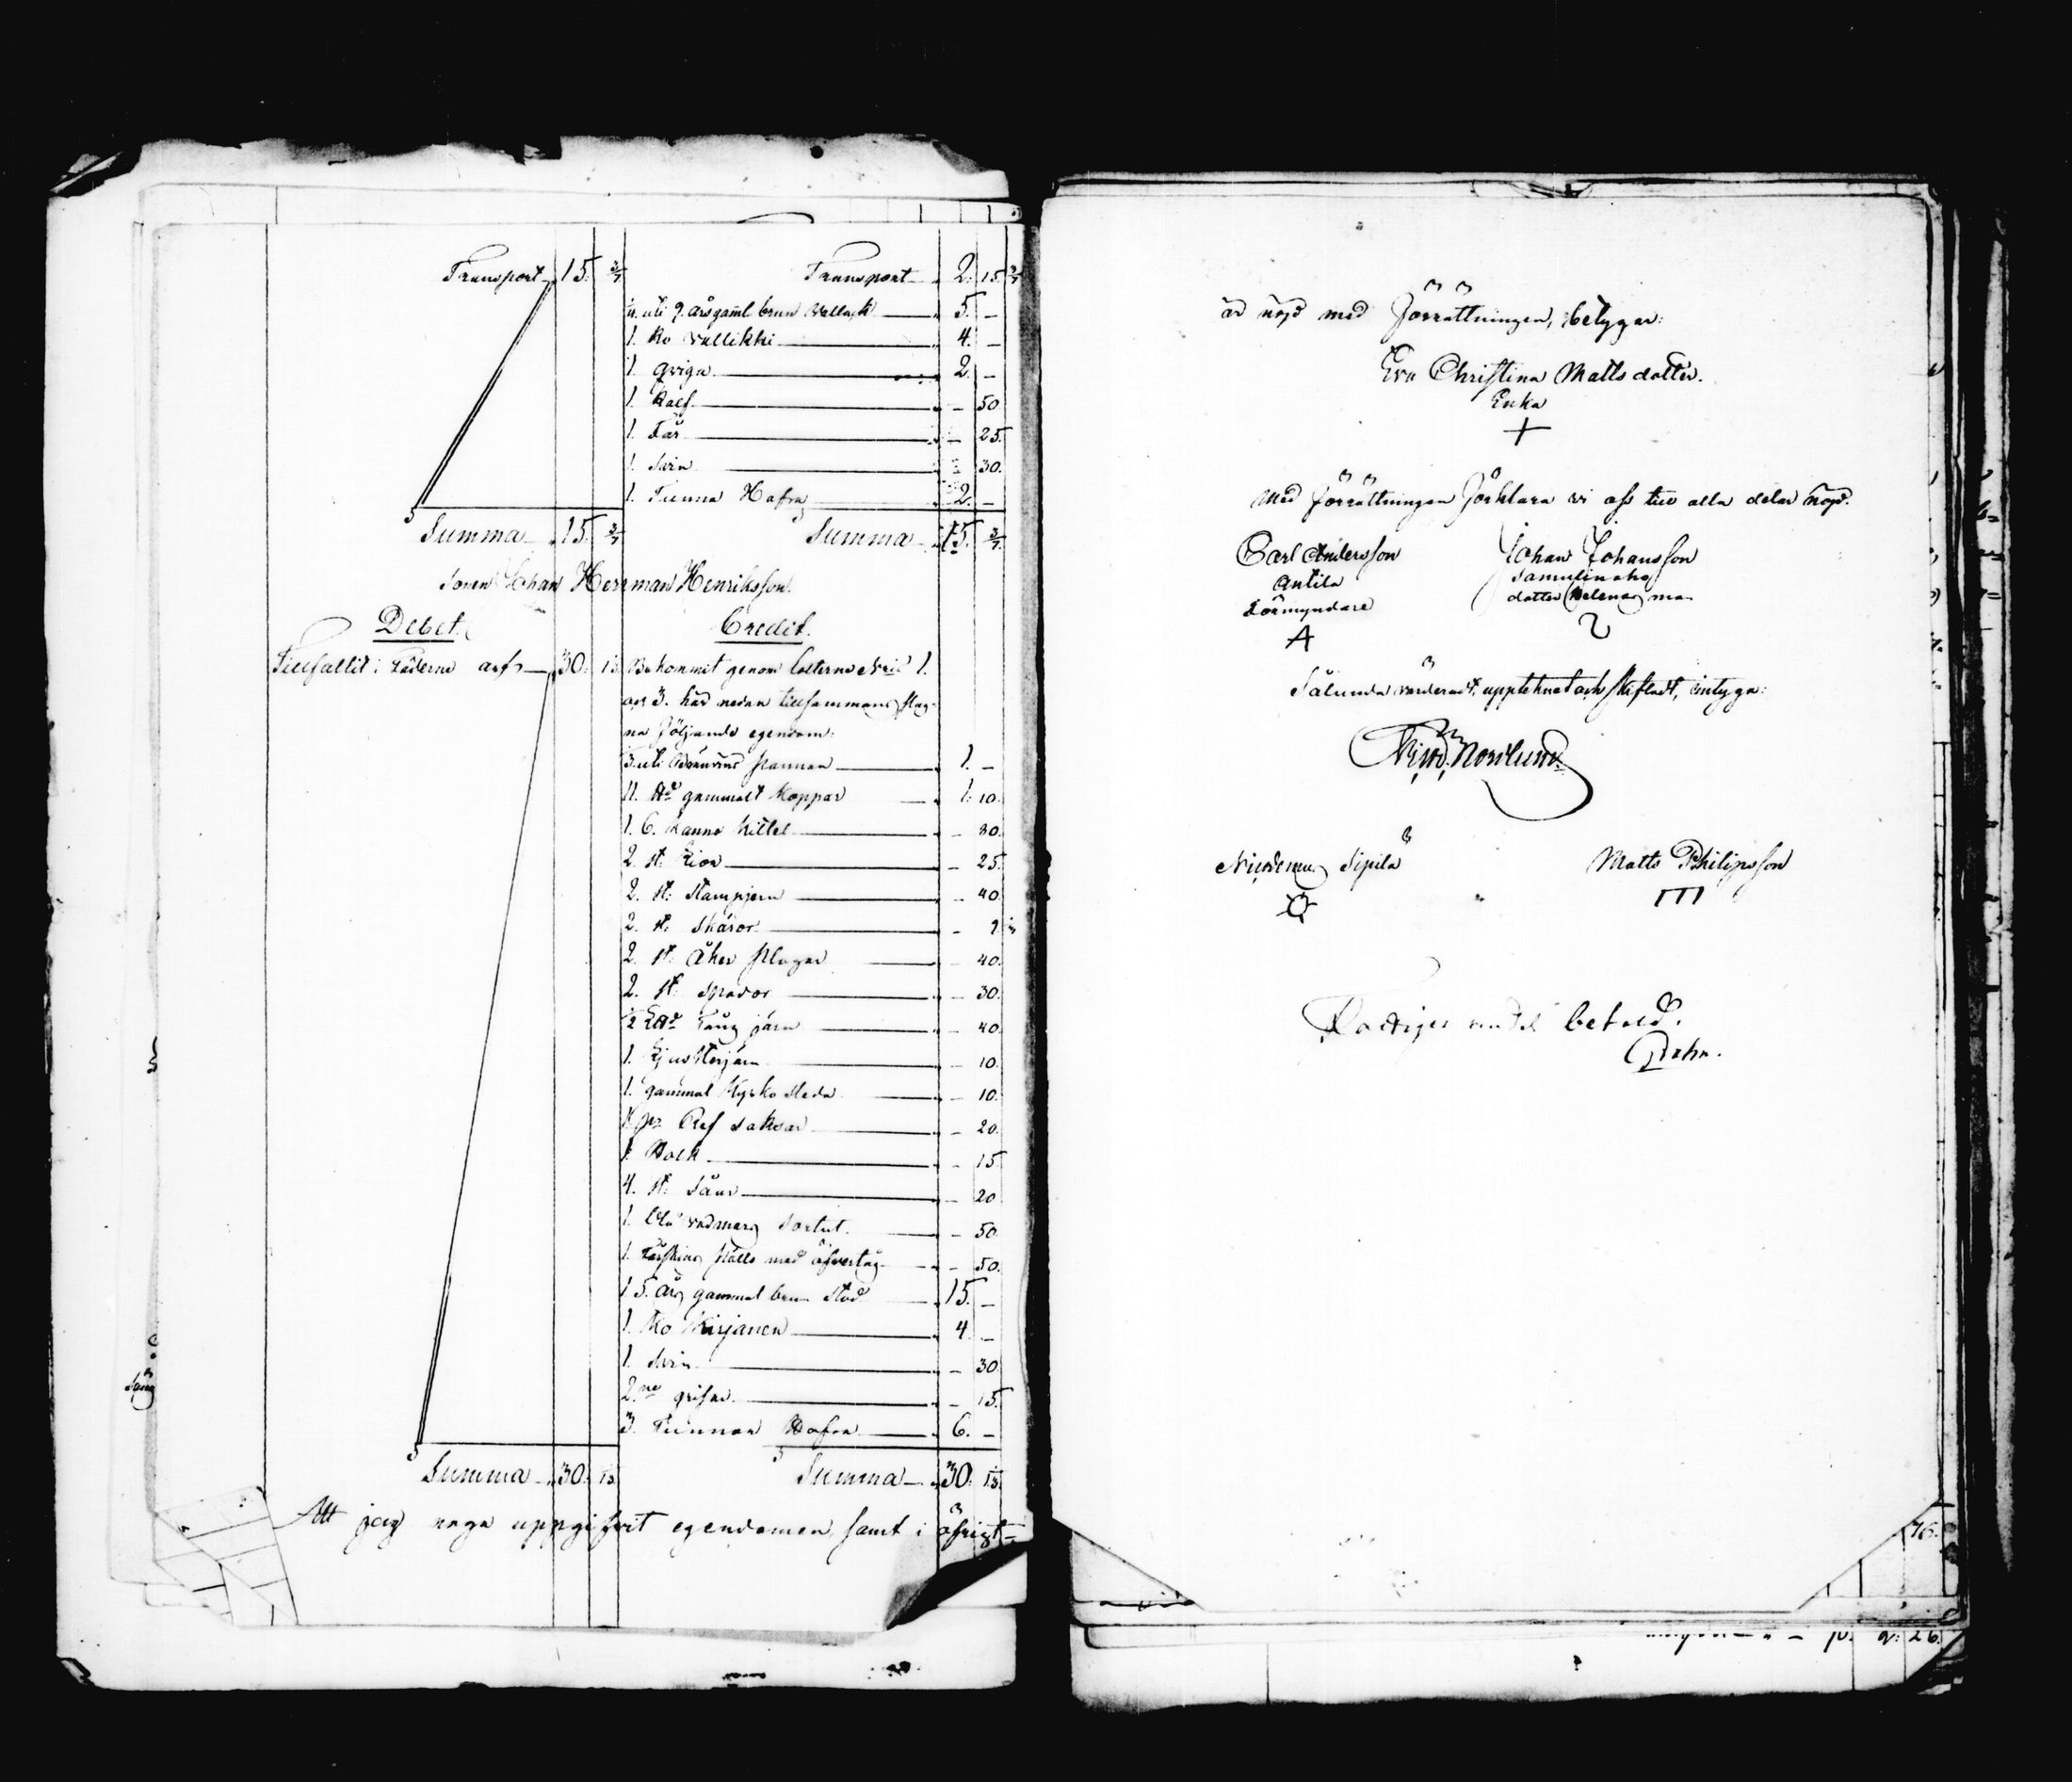 Transport 15. 3/7 Transport 2. 15. 3/7
uti 9. årsgamt brun Vallack 5. –
1. Ko Vallikki 4. –
1. qviga 2. –
1. Kalf – 50
1. Får – 25.
1. Svin – 30.
1. Tunna Hafra 2. –
Summa 15. 3/7 Summa 15. 3/7
Sonen Johan Herrman Henriksson.
Debet. Credit.
Tillfallit i Fäderne arf 30. Bekommit genom lotterne N:ris 1.
och 3. här nedan tillsammans slag-
na följande egendom:
uti Bränvins pannan 1. –
11. gammalt Koppar 1. 10.
1. 6. Kanns Kittel – 30.
2. st: Liar – 25.
2. st: Stampjern – 40.
2. st: Skäror –
2. st: Åker plogar – 40.
2. st: Spador – 30.
järn – 40.
1. Ljusterjärn – 10.
1. gammal Kyrko släda – 10.
1. par Ref saksar – 20.
1. – 15.
4. st: – 20
1. blå vadmans sortut. – 50.
1. Fårskins päls med öfvertåg – 50.
1. 5. års gammal brun Stod 15. –
1. Ko Kirjanen 4. –
1. Svin – 30
2:ne grisar – 15.
3. Tunnor Hafra 6. –
Summa 30. Summa 30.
Att jag noga uppgifvit egendomen, samt i öfrigt
är nöjd med Förrättningen, betygar:
Eva Christina Matts dotter.
Enka
Med Förrättningen förklara vi oss till alla delar nöjd.
Carl Andersson Johan Johansson
Antila Samulinaho
Förmyndare dotter Helenas man
Sålunda värderadt, upptecknadt och skiftadt, intyga:
Nicod. Norrlund
Nicodemus Sipilä Matts Philipsson
Fattiges andel betald.